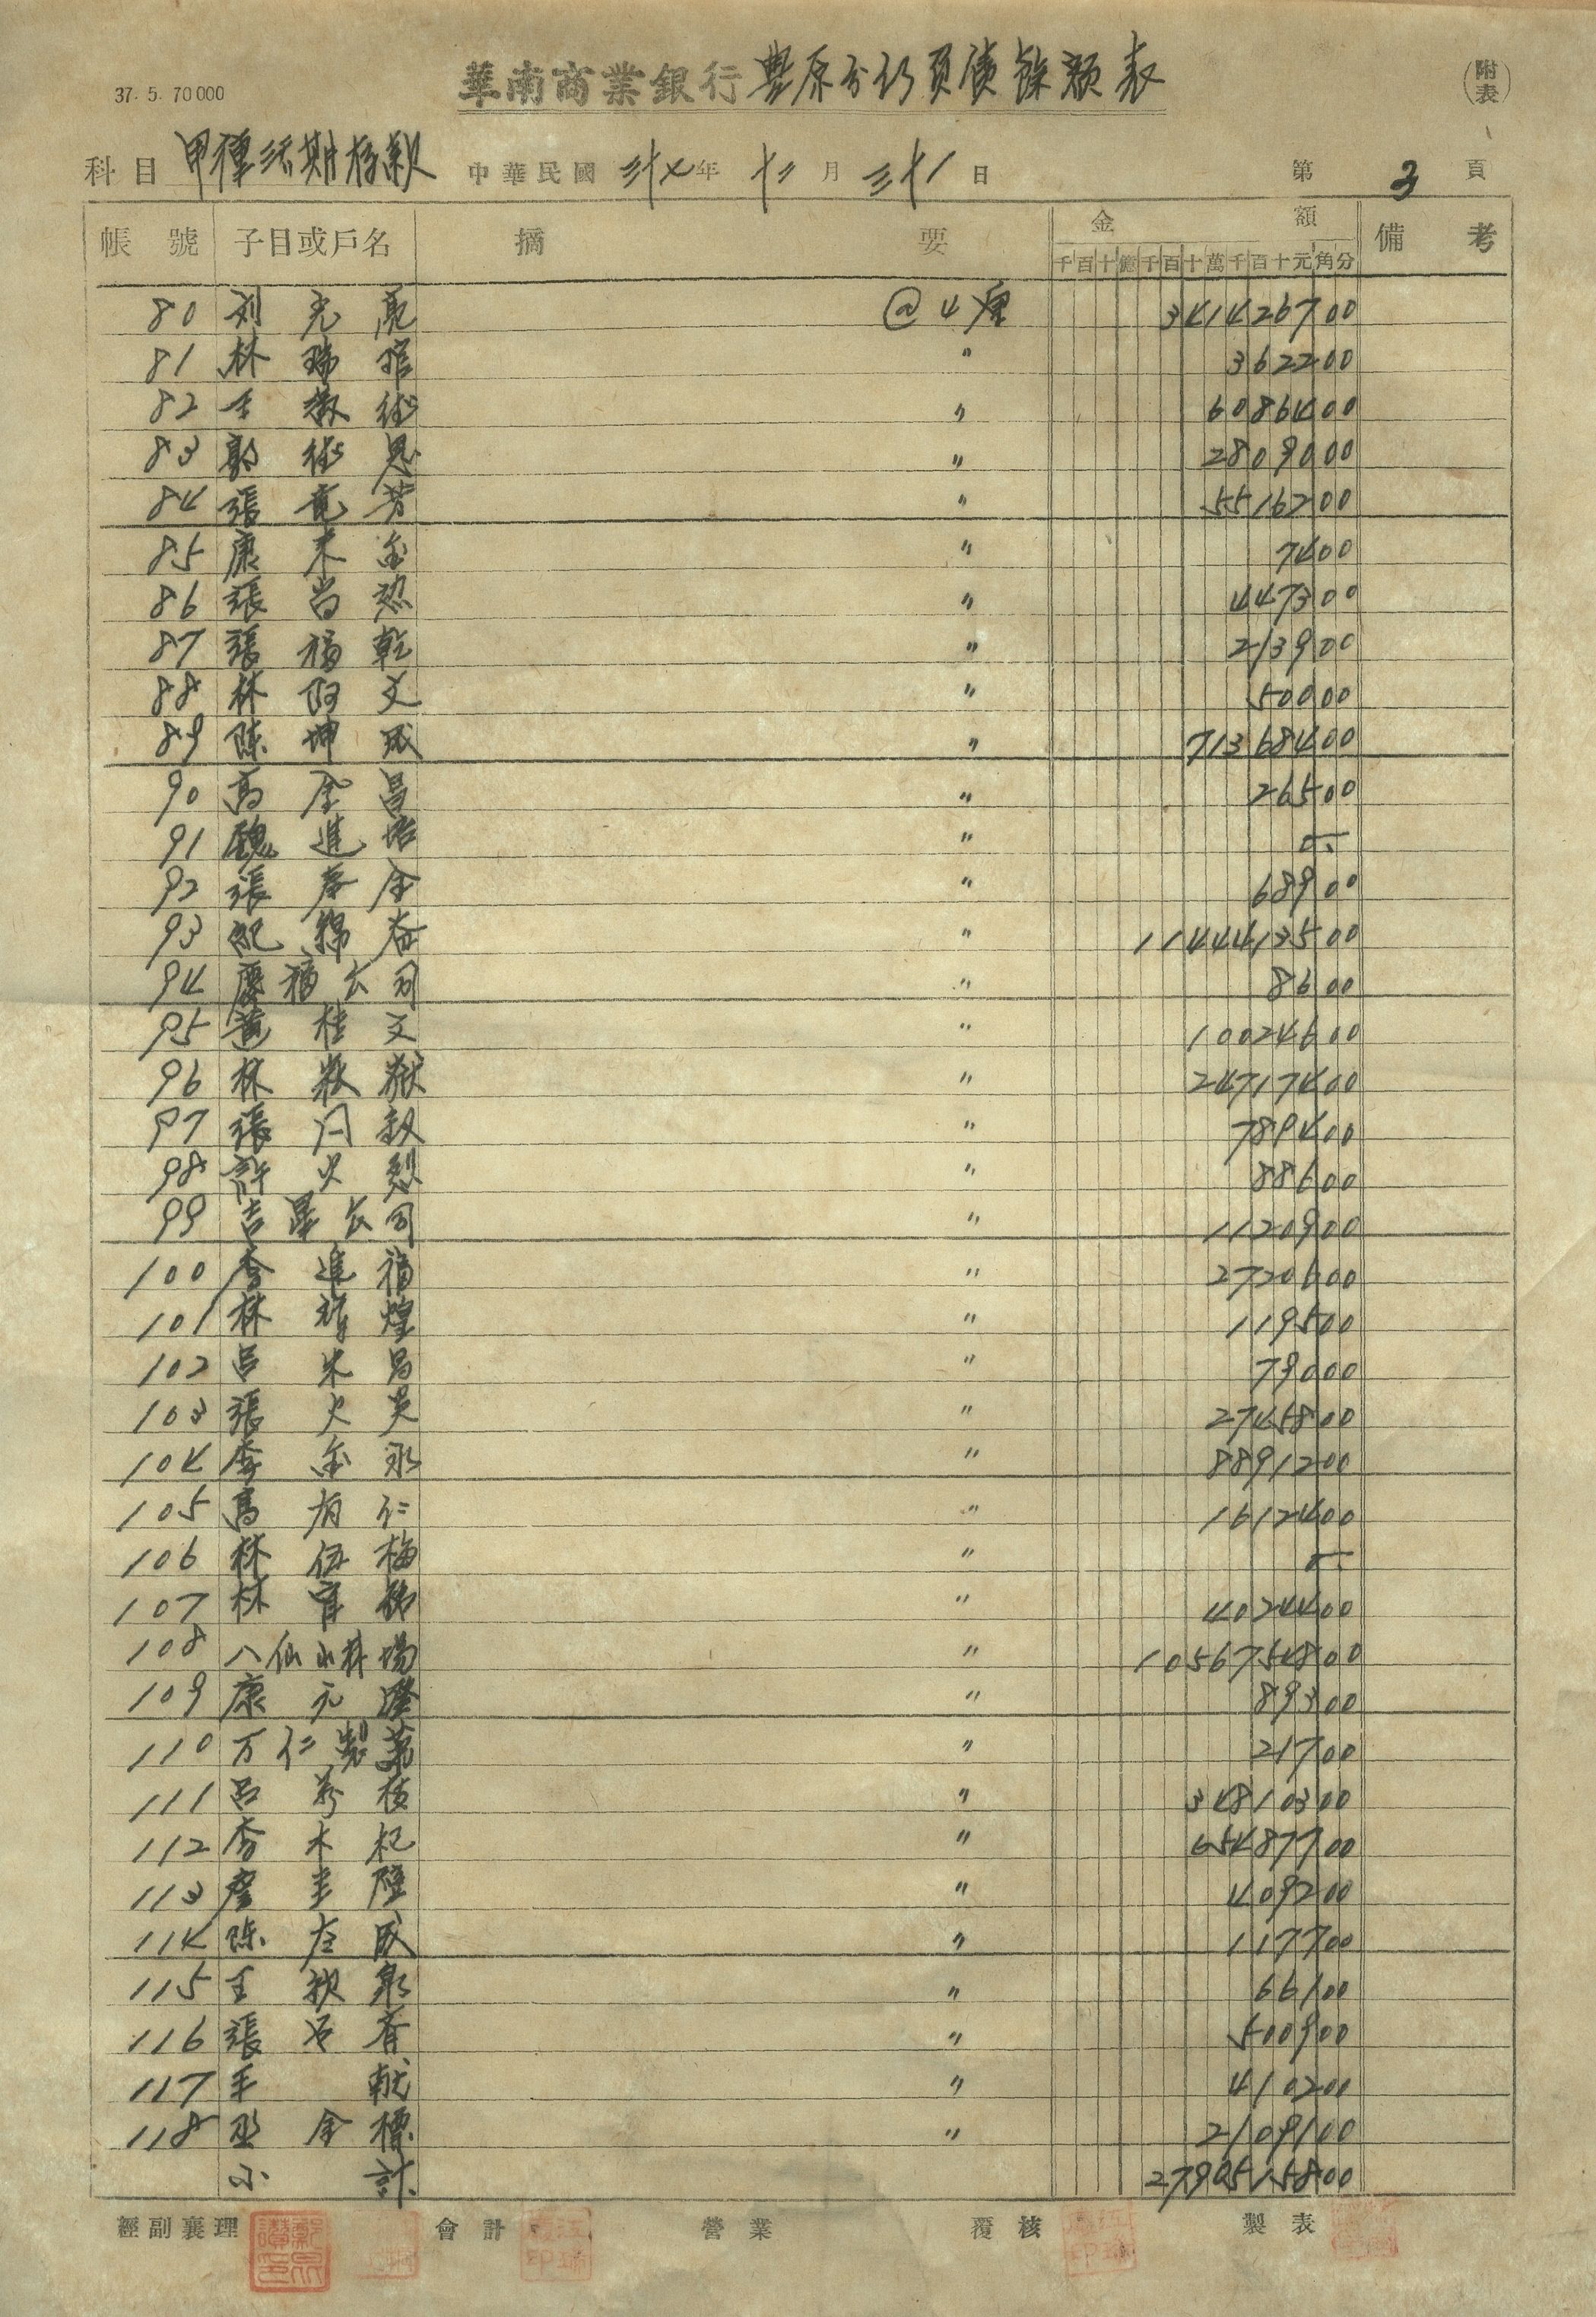 37. 5. 70000
華南商業銀行豐原分行負債餘額表
(附表)
科目 甲種活期存款 中華民國 三十七年 十二月 三十一日 第 3 頁
帳號 子目或戶名 摘要 金額 備考
千百十億千百十萬千百十元角分
80 刘光亮 @4厘 3414267 00
81 林瑞 〃 3622 00
82 王 〃 60864 00
83 郭 恩 〃 28090 00
84 張 芳 〃 55162 00
85 康 〃 74 00
86 張尚 〃 4473 00
87 張福乾 〃 2139 00
88 林阿文 〃 500 00
89 陳坤成 〃 713684 00
90 高金昌 〃 265 00
91 魏進 〃
92 張春金 〃 689 00
93 紀錦春 〃 11444135 00
94 慶福公司 〃 86 00
95 黃桂文 〃 100246 00
96 林 〃 247174 00
97 張 〃 7894 00
98 許火烈 〃 886 00
99 吉星公司 〃 11209 00
100 李進福 〃 27206 00
101 林輝煌 〃 1195 00
102 呂 昌 〃 790 00
103 張火炎 〃 27458 00
104 李金永 〃 88912 00
105 高有仁 〃 16124 00
106 林伍梅 〃
107 林 〃 40244 00
108 八仙山林場 〃 10567548 00
109 康元 〃 893 00
110 万仁製藥 〃 217 00
111 呂 枝 〃 348103 00
112 李木杞 〃 654877 00
113 詹 〃 4092 00
114 陳 成 〃 1177 00
115 王 泉 〃 661 00
116 張 〃 5009 00
117 〃 4102 00
118 巫金標 〃 21091 00
小計 27905158 00
經副襄理 會計 營業 覆核 製表